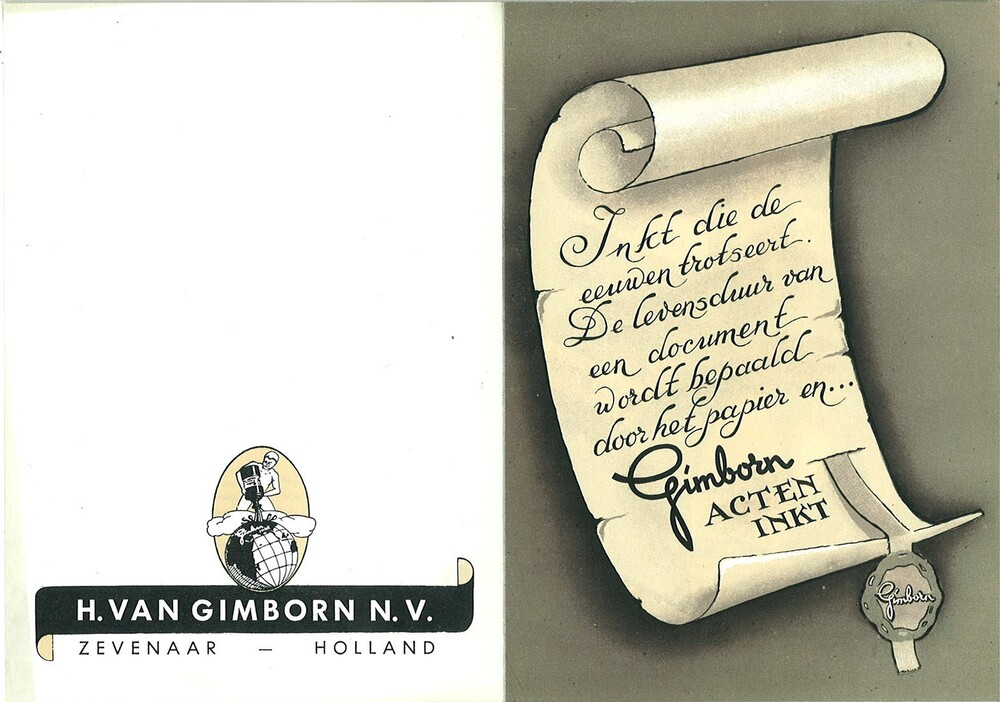 H. VAN GIMBORN N. V.
ZEVENAAR — HOLLAND
Inkt die de
eeuwen trotseert.
De levensduur van
een document
wordt bepaald
door het papier en...
Gimborn
ACTEN
INKT
Gimborn